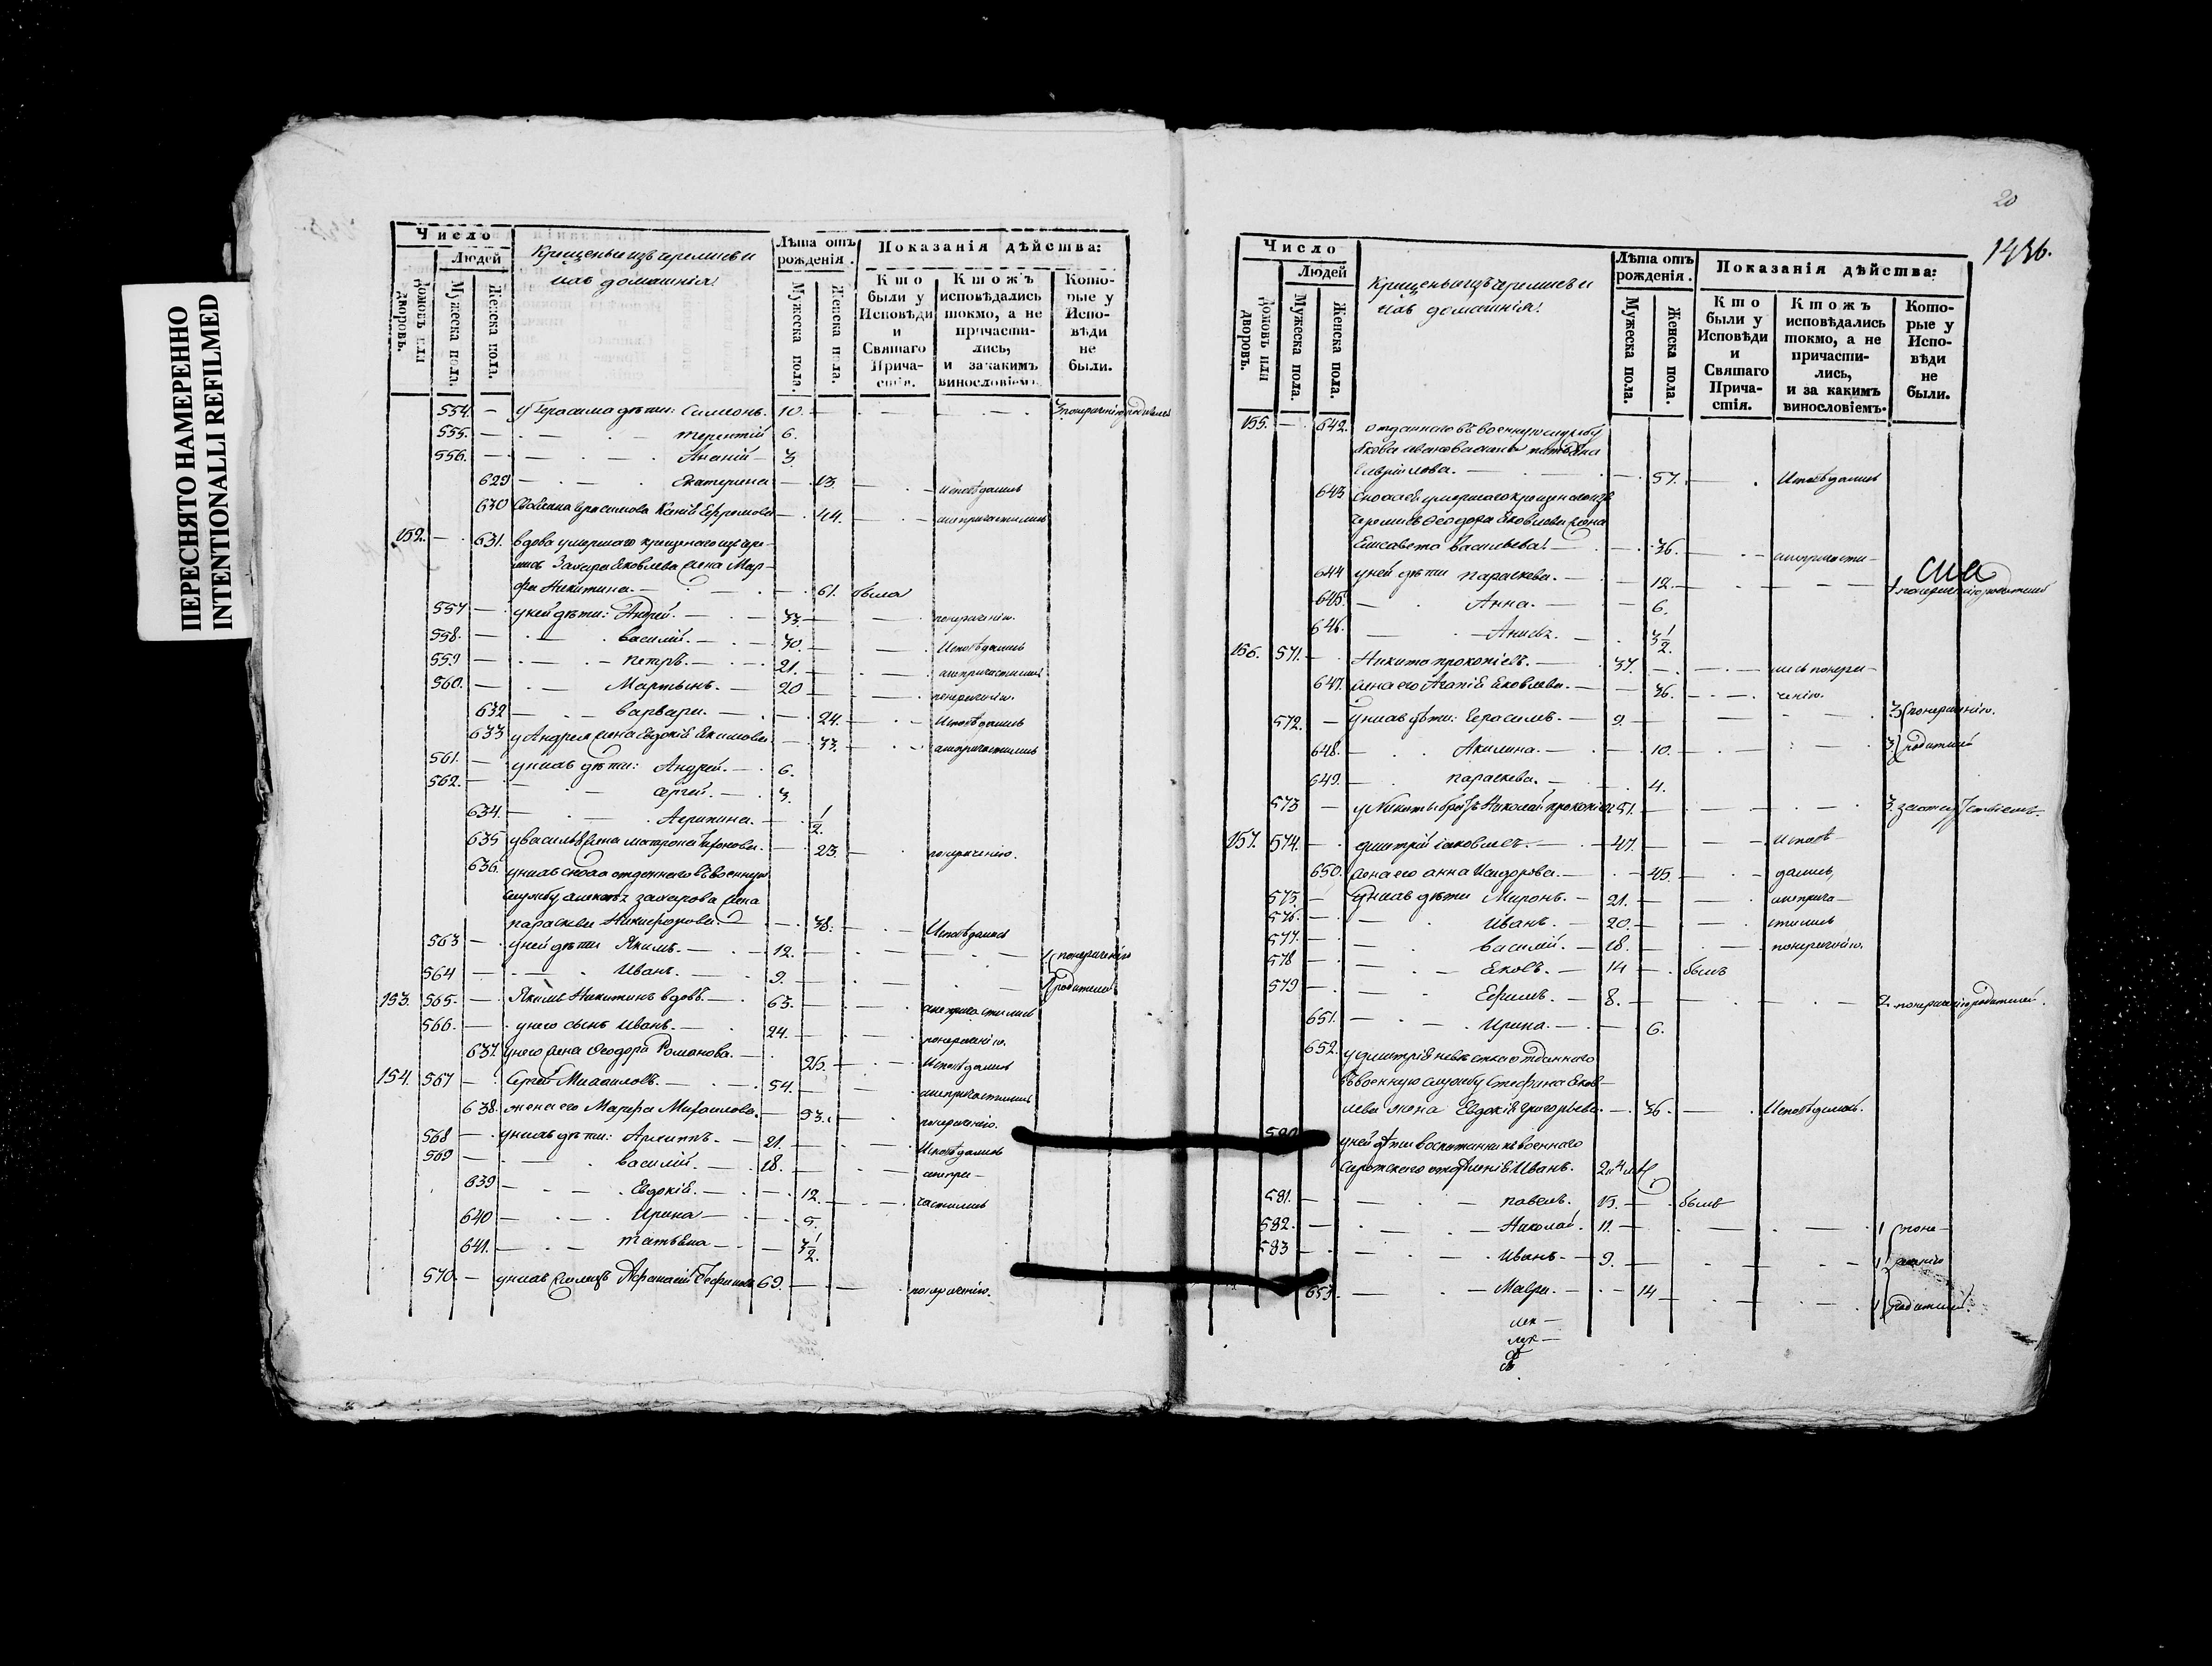 ПЕРЕСНЯТО НАМЕРЕННО
INTENTIONALLI REFILMED
Число
Людей
домовъ или дворовъ.
Мужеска пола.
Женска пола.
Крещеныи изъ черемисъ и
ихъ домашнія
Лѣта отъ рожденія.
Мужеска пола.
Женска пола.
Показанія дѣйства:
Кто были у Исповѣди и Святаго Причастія.
Ктожъ исповѣдались токмо, а не причастились, и за какимъ винословіемъ.
Которые у Исповѣди не были.
554. — у Герасима дѣти: Симонъ. 10.
555. — Терентій 6.
556. — Ананій — 3.
629 — Екатерина — 13. Исповѣдались
630 Ксенія Ефремова — 44. а не причастились
152. — 631. вдова умершаго крещенаго изъ чере-
мисъ Захара Яковлева жена Мар-
фа Никитина. — 61. была
557 — у ней дѣти: Андрей. — 33. — понерачению.
558. — Василий. — 30. — Исповѣдались
559 — Петръ. — 21. — а не причастились
560. — Мартынъ. — 20 — понерачению.
632 — Варвара. — 24. — Исповѣдались
633 у Андрея жена Евдокія Якимова — 33. — а не причастились
561. — у нихъ дѣти: Андрей. — 6.
562. — Сергей. — 3.
634. — Агрипина. — 1/2.
635 у Василья жена Матрона — 23. — понерачению.
636. у нихъ сноха отданнаго въ военную
службу Захарова жена
Параскева Никифорова. — 38. — Исповѣдался
563 — у ней дѣти Якимъ. — 12. — понерачению
564 — Иванъ. — 9. — родителей
153. 565. — Якимъ Никитинъ вдовъ. — 63. — а не причастились
566. — у него сынъ Иванъ. — 24. — понерачению.
637. у него жена Феодора Романова. — 25. — Исповѣдались
154. 567 — Сергей Михаиловъ. — 54. — а не причастились
638. жена его Марфа Михаилова. — 53. — понерачению.
568 — у нихъ дѣти: Архиппъ. — 21 — Исповѣдались
569 — Василий. — 18. — а не при-
639 — Евдокія. — 12. — частились
640 — Ирина — 5.
641. — Татьяна — 3 1/2.
570. — у нихъ Афанасій 69. — понерачению.
20
1436.
Число
Людей
домовъ или дворовъ.
Мужеска пола.
Женска пола.
Крещеныи изъ черемисъ и
ихъ домашнія.
Лѣта отъ рожденія.
Мужеска пола.
Женска пола.
Показанія дѣйства:
Кто были у Исповѣди и Святаго Причастія.
Ктожъ исповѣдались токмо, а не причастились, и за какимъ винословіемъ.
Которые у Исповѣди не были.
155. — 642. отданнаго въ военную службу
Якова Иванова жена Татьяна
Гаврилова. — 57. — Исповѣдались
643 сноха ея умершаго крещенаго изъ
черемисъ Феодора Яковлева жена
Елисавета Васильева. — 36. — а не причасти-
644 у ней дѣти Параскева. — 12. — 1 понерачению родителей
645. — Анна. — 6.
646. — 3 1/2.
156. 571. — Никита Прокопіевъ. — 37. — лись понера-
647. жена его Агапія Яковлева. — 36. — чению.
572. — у нихъ дѣти: Герасимъ. — 9 — 3 понерачению.
648. — Акилина. — 10. — 3 родителей
649. — Параскева. — 4.
573 — у Никиты братъ Николай Прокопіевъ 51. — 3 за отсутствіемъ.
157. 574. — Димитрій Яковлевъ. — 47. — Исповѣ-
650. жена его Анна Исидорова. — 45. — дались,
575. — у нихъ дѣти Миронъ. — 21. — а не прича-
576. — Иванъ. — 20. — стились
577. — Василий. — 18. — понерачению.
578 — Яковъ. — 14 — былъ
579 — Ефимъ. — 8. — 2. понерачению родителей.
651. — Ирина. — 6.
652. у Димитрія невѣстка отданнаго
въ военную службу Стефана Яков-
лева жена Евдокія Григорьева. — 36. — Исповѣдалась.
580 у ней дѣти воспитанникъ военнаго
сиротскаго отдѣленія Иванъ.
581. — Павелъ. 15. — былъ
582. — Николай. 11. — 1 поне-
583 — Иванъ. — 9. — 1 рачению
653. — Мавра. — 14 — 1 родителей.